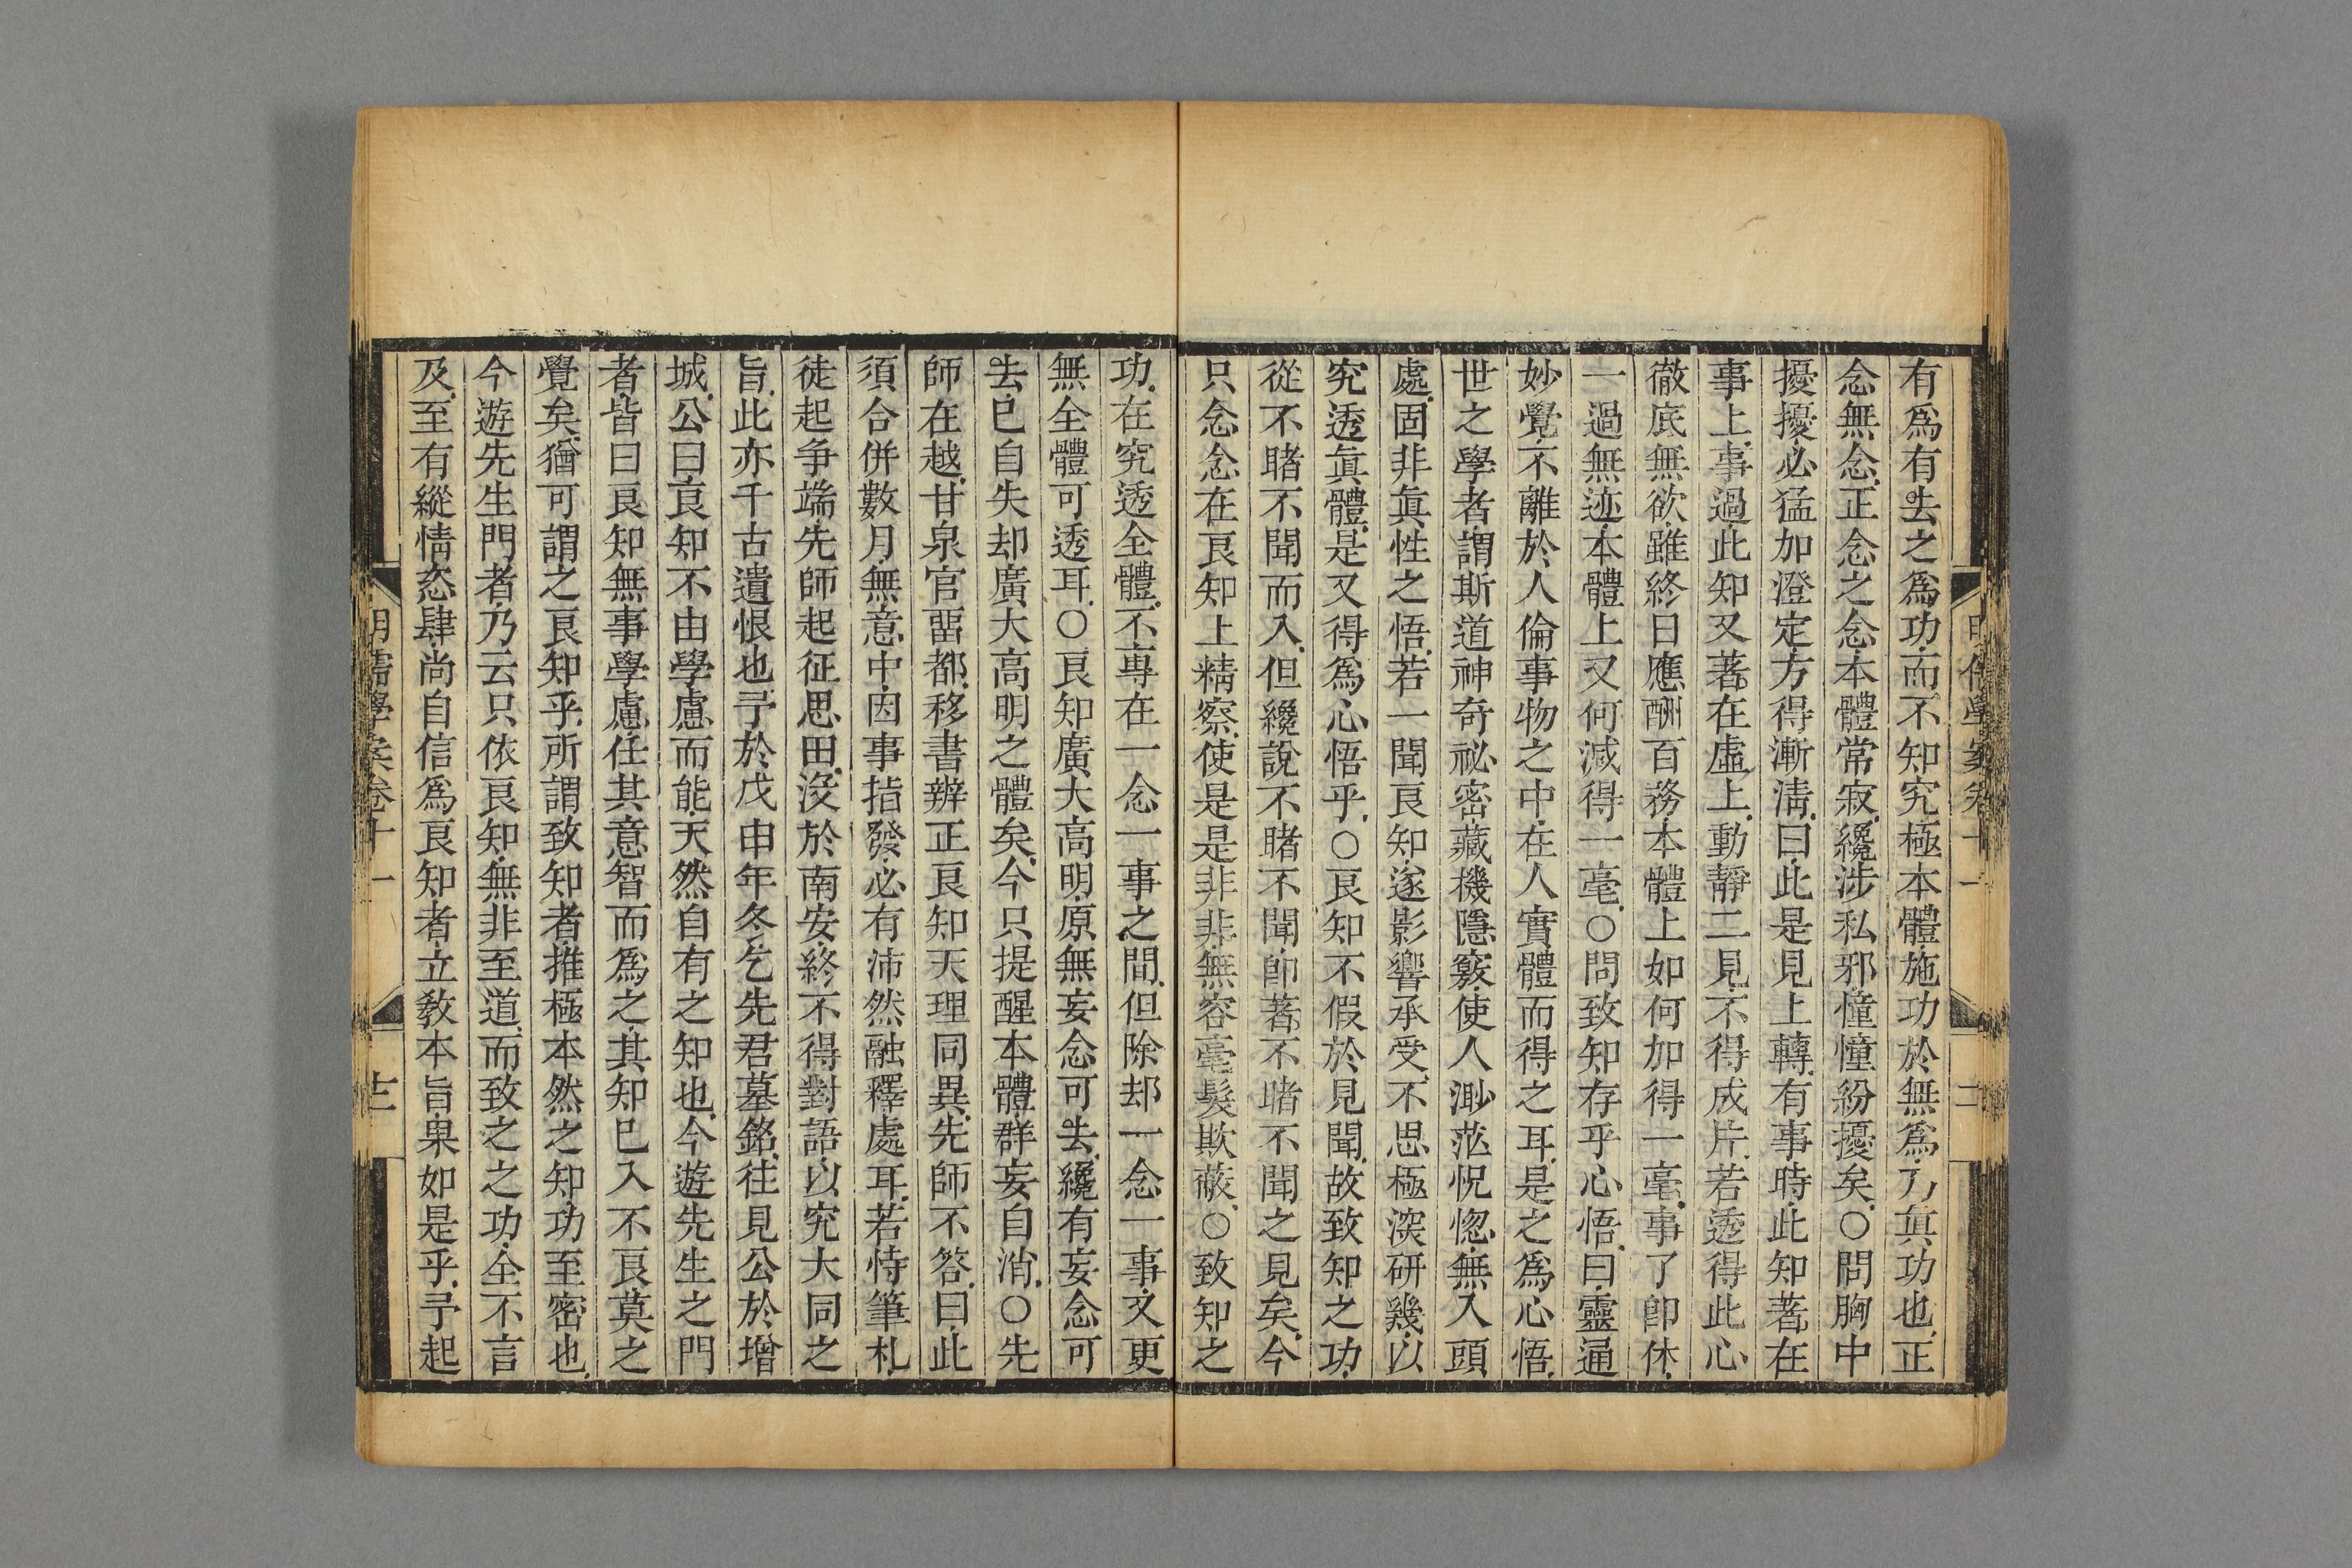 有爲有去之爲功而不知究極本體施功於無爲乃眞功也正
念無念正念之念本體常寂纔涉私邪憧憧紛擾矣○問胸中
擾擾必猛加澄定方得漸淸曰此是見上轉有事時此知著在
事上事過此知又著在虛上動靜二見不得成片若透得此心
徹底無欲雖終日應酬百務本體上如何加得一毫事了卽休
一過無迹本體上又何減得一毫○問致知存乎心悟曰靈通
妙覺不離於人倫事物之中在人實體而得之耳是之爲心悟
世之學者謂斯道神奇祕密藏機隱竅使人渺茫怳惚無入頭
處固非眞性之悟若一聞良知遂影響承受不思極深研幾以
究透眞體是又得爲心悟乎○良知不假於見聞故致知之功
從不睹不聞而入但纔說不睹不聞卽著不睹不聞之見矣今
只念念在良知上精察使是是非非無容毫髮欺蔽○致知之
功在究透全體不專在一念一事之間但除却一念一事又更
無全體可透耳○良知廣大高明原無妄念可去纔有妄念可
去已自失却廣大高明之體矣今只提醒本體群妄自消○先
師在越甘泉官畱都移書辨正良知天理同異先師不答曰此
須合併數月無意中因事指發必有沛然融釋處耳若恃筆札
徒起爭端先師起征思田沒於南安終不得對語以究大同之
旨此亦千古遺恨也予於戊申年冬乞先君墓銘往見公於增
城公曰良知不由學慮而能天然自有之知也今遊先生之門
者皆曰良知無事學慮任其意智而爲之其知已入不良莫之
覺矣猶可謂之良知乎所謂致知者推極本然之知功至密也
今遊先生門者乃云只依良知無非至道而致之之功全不言
及至有縱情恣肆尚自信爲良知者立敎本旨果如是乎予起
明儒學案卷十一